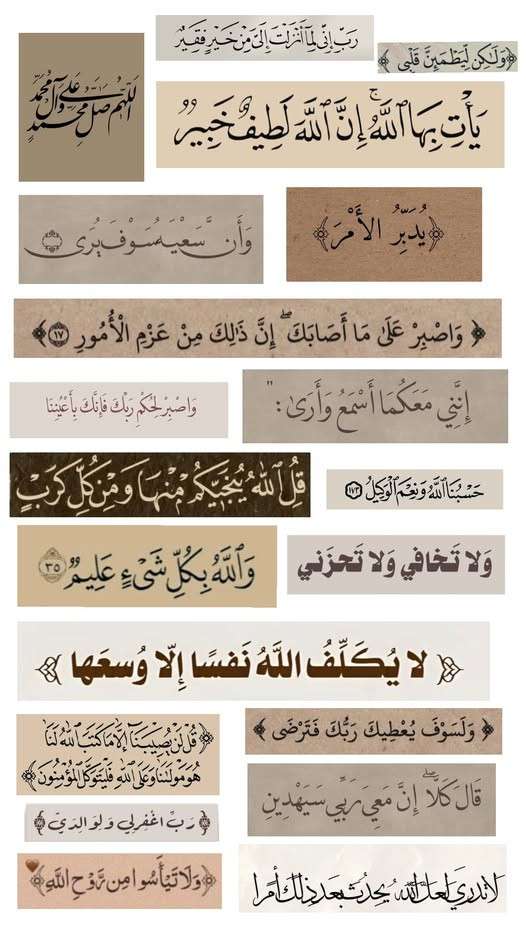 رَبِّ إِنِّي لِمَا أَنزَلْتَ إِلَيَّ مِنْ خَيْرٍ فَقِيرٌ
﴿وَلَـٰكِن لِّيَطْمَئِنَّ قَلْبِي﴾
اللهم صل على محمد وآل محمد
يَأْتِ بِهَا ٱللَّهُ ۚ إِنَّ ٱللَّهَ لَطِيفٌ خَبِيرٌ
وَأَنَّ سَعْيَهُ سَوْفَ يُرَى
﴿يُدَبِّرُ الأَمْرَ﴾
﴿ وَاصْبِرْ عَلَىٰ مَا أَصَابَكَ ۖ إِنَّ ذَٰلِكَ مِنْ عَزْمِ الْأُمُورِ ١٧ ﴾
إِنَّنِي مَعَكُمَا أَسْمَعُ وَأَرَىٰ :"
وَاصْبِرْ لِحُكْمِ رَبِّكَ فَإِنَّكَ بِأَعْيُنِنَا
قُلِ ٱللَّهُ يُنَجِّيكُم مِّنْهَا وَمِن كُلِّ كَرْبٍ
حَسْبُنَا ٱللَّهُ وَنِعْمَ ٱلْوَكِيلُ ١٧٣
وَٱللَّهُ بِكُلِّ شَيْءٍ عَلِيمٌ ٣٥
وَلا تَخافي وَلا تَحزَني
﴿ لا يُكَلِّفُ اللَّهُ نَفسًا إِلّا وُسعَها ﴾
﴿قُل لَّن يُصِيبَنَآ إِلَّا مَا كَتَبَ ٱللَّهُ لَنَا
هُوَ مَوْلَىٰنَا وَعَلَى ٱللَّهِ فَلْيَتَوَكَّلِ ٱلْمُؤْمِنُونَ﴾
﴿ وَلَسَوْفَ يُعْطِيكَ رَبُّكَ فَتَرْضَى ﴾
قَالَ كَلَّا ۖ إِنَّ مَعِيَ رَبِّي سَيَهْدِينِ
﴿رَبِّ اغْفِرْ لِي وَلِوَالِدَيَّ﴾
﴿وَلَا تَيْأَسُوا مِن رَّوْحِ اللَّهِ﴾
لَا تَدْرِي لَعَلَّ اللَّهَ يُحْدِثُ بَعْدَ ذَٰلِكَ أَمْرًا